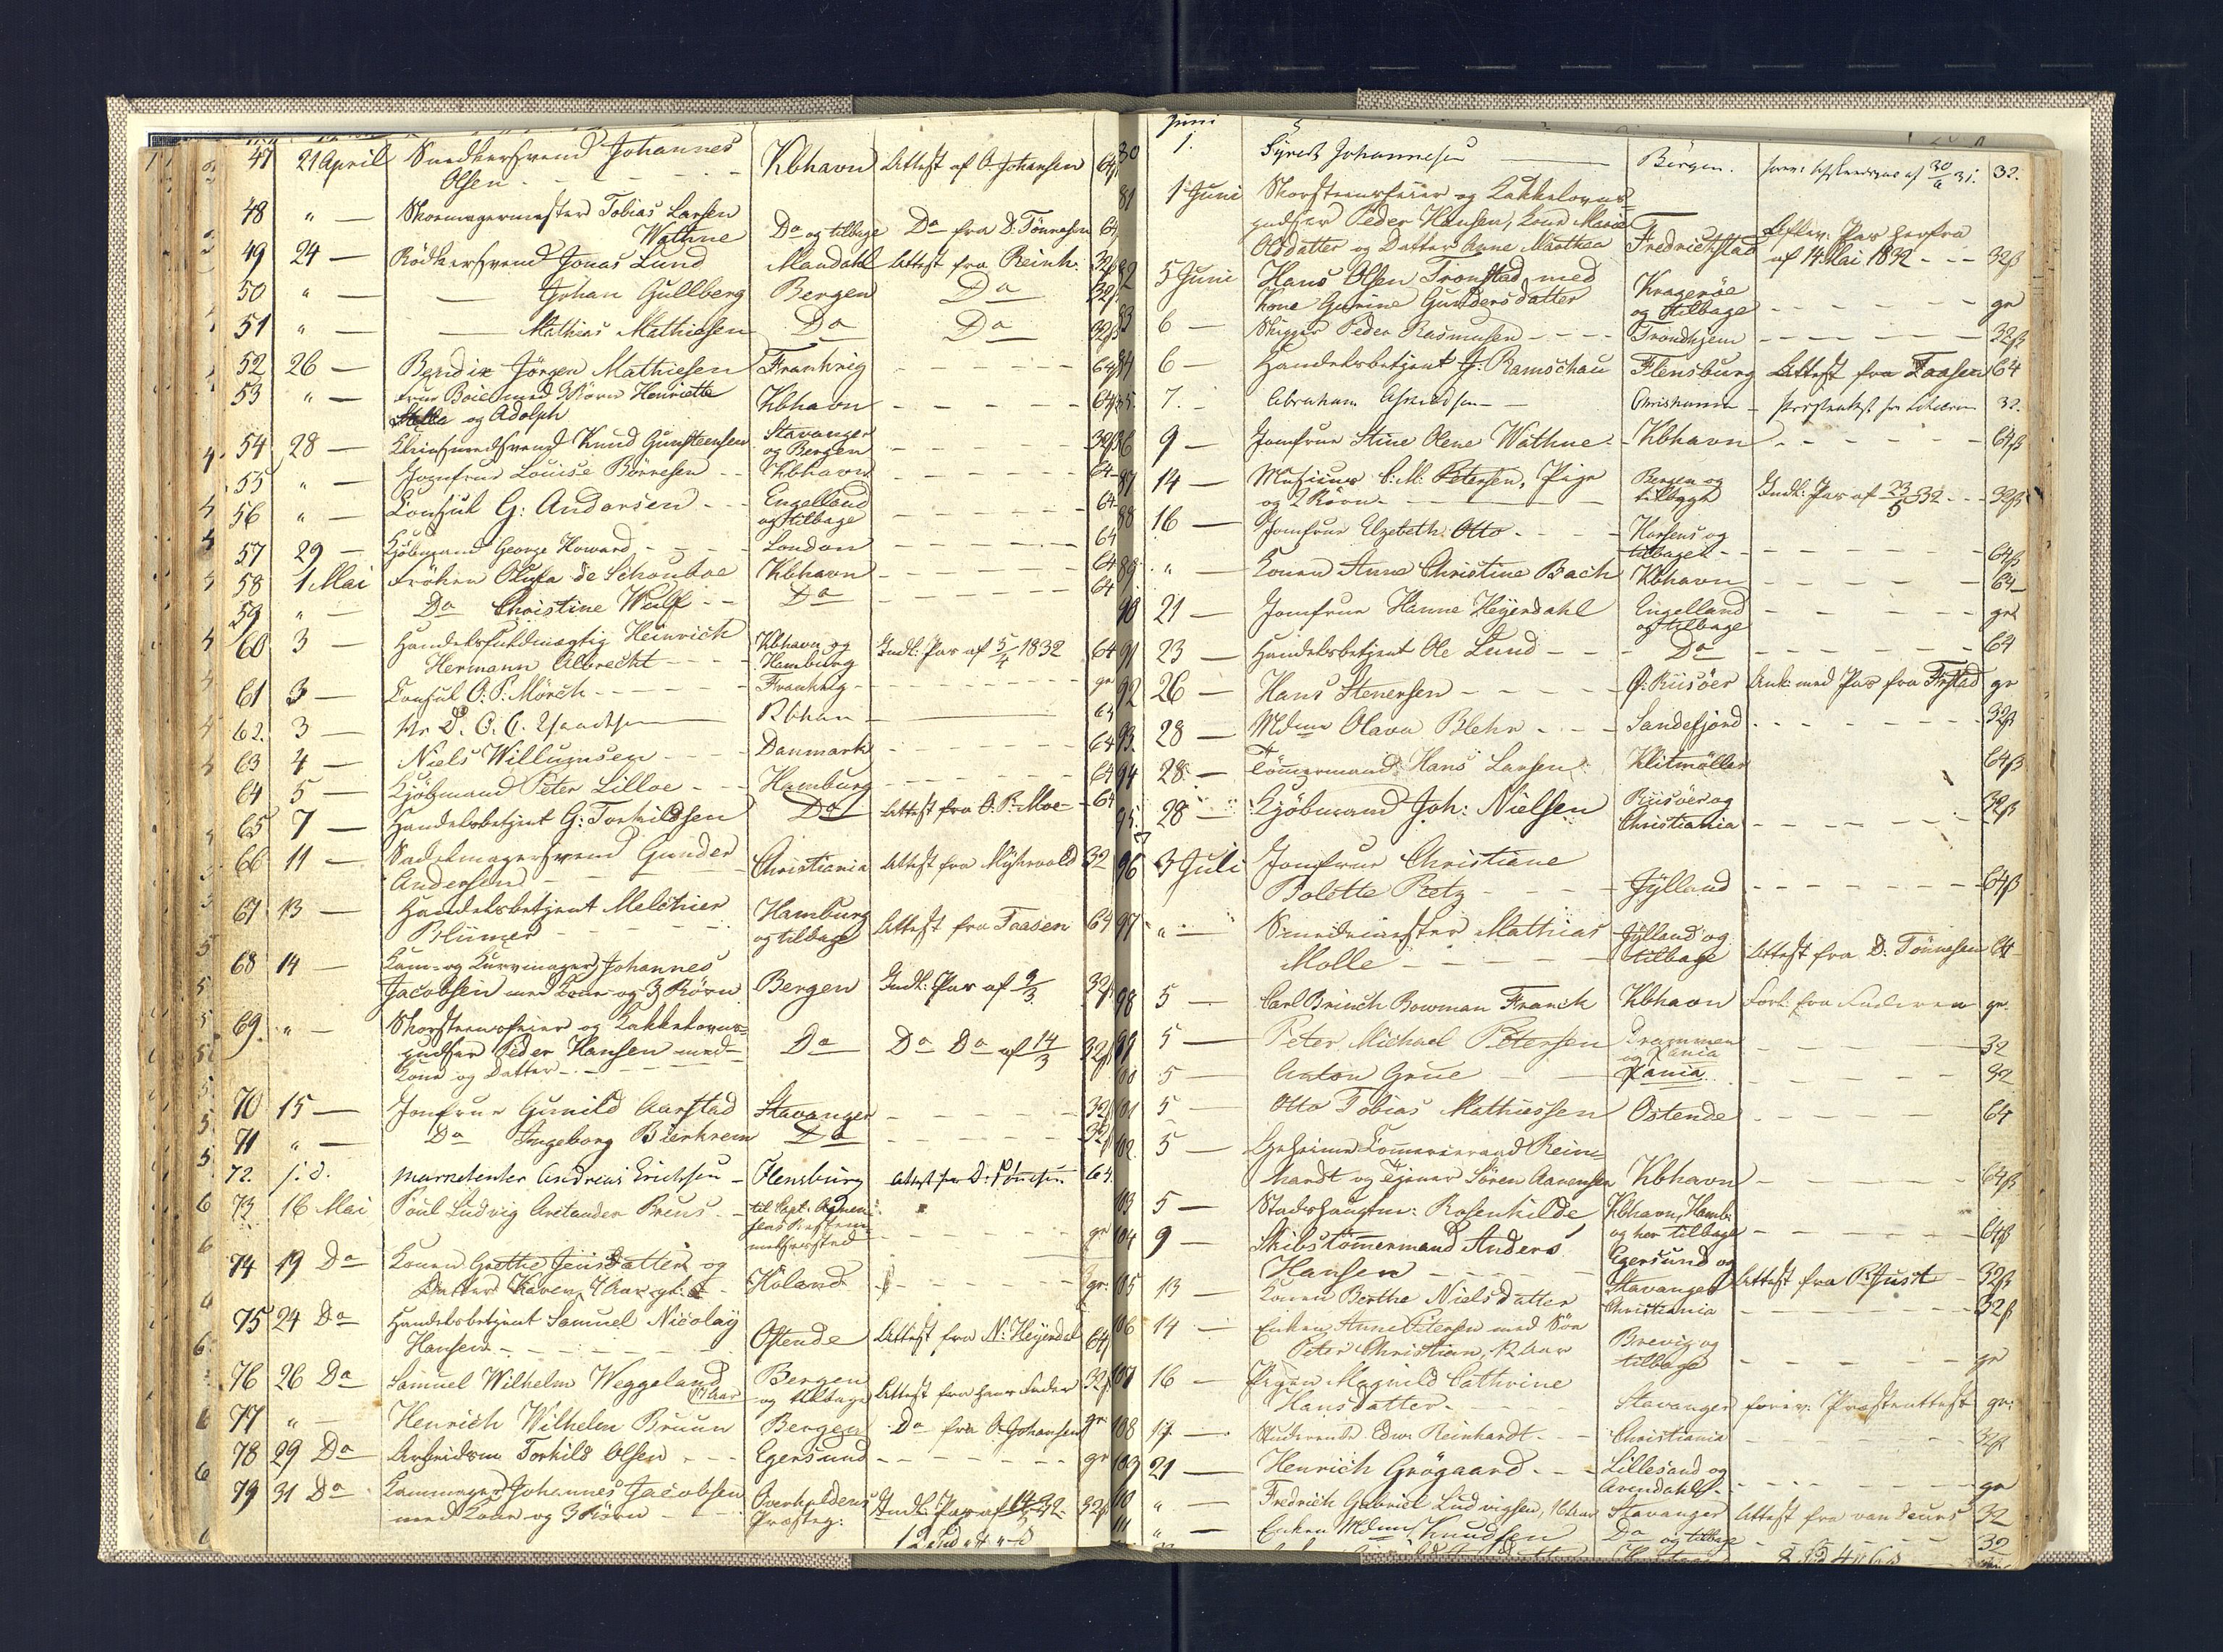 47 21 April Snedkersvend Johannes
Olsen - - - - Kbhavn Attest af O. Johansen 64
48 " — Skomagermester Tobias Larsen
Wathne Do og tilbage Do fra D. Tönnesen 64
49 24 — Bödkersvend Jonas Lund Mandahl Attest fra Reinh. 32ß
50 " — — Johan Gullberg Bergen Do 32ß
51 " — — Mathias Mathiasen Do Do 32ß
52 26 — Bendix Jörgen Mathiesen Frankrig - - - - 64ß
53 " — Frue Boie med 2 Börn Henriette
og Adolph Kbhavn - - - - 64ß
54 28 — Kleinsmedsvend Knud Gunsteensen Stavanger
og Bergen - - - - 32ß
55 " — Jomfrue Louise Börresen - - Kbhavn - - - - 64
56 " — Consul G: Andersen - - Engelland
og tilbage - - - - 64
57 29 — Kjöbmand George Howard - - - London - - - - 64
58 1 Mai Fröken Olufa de Schouboe Kbhavn - - - - 64
59 " — Do Christine Wulff - - Do 64
60 3 — Handelsfuldmægtig Heinrich
Hermann Albrecht - - - - Kbhavn og
Hamburg Indl: Pas af 5/4 1832 64
61 3 — Consul O: P: Mörch - - - - - Frankrig - - - - - gr
62. 3 — Hr D. C. C. Kbhan — 64
63 4 — Niels Willumsen - - - Danmark - - - - 64
64 5 — Kjöbmand Peter Lilloe - - - Hamburg - - - - 64
65 7 — Handelsbetjent G: Torkildsen Do Attest fra O. P. Moe - 64
66 11 — Sadelmagersvend Gunder
Andersen - - - Christiania Attest fra Myhrvold 32
67 13 — Handelsbetjent Melchier
Blümer - - - - Hamburg
og tilbage Attest fra Faasen 64
68 14 — Kam- og Kurvmager Johannes
Jacobsen med Kone og 3 Börn Bergen Indl: Pas af 9/3 32ß
69. " — Skorsteensfeier og Kakkelovns=
pudser Peder Hansen med
Kone og Datter - - - - Do Do Do af 14/3 32ß
70 15 — Jomfrue Gunild Aarstad Stavanger - - - - 32ß
71 " — Do Ingeborg Bierkrem Do - - - - 32ß
72. j. d. Marketenter Andreas Erichsen - Flensburg Attest fra D. Tönnesen 64
73 16 Mai Poul Ludvig Aretander Breus - til Capt.
gr
74 19 Do Konen Grethe Jensdatter og
Datter Karen, 7 Aar gl: - Höland - - - - gr
75 24 Do Handelsbetjent Samuel Nicolay
Hansen - - - - Ostende Attest fra N: Heyerdal 64
76 26 Do Samuel Wilhelm Weggeland
Aar Bergen
og tilbage Attest fra hans Fader 32ß
77 " — Henrich Wilhelm Bruun Bergen Do fra O. Johansen gr
78 29 Do Arbeidsm Torkild Olsen - - - Egersund - - - - gr
79 31 Do Kammager Johannes Jacobsen
med Kone og 3 Börn - Overhalden
Præsteg: Indl: Pas af 32 - 32ß
Juni
80 1. Syvert Johannesen — Bergen. 30/6 31. 32.
81 1 Juni Skorsteensfeier og Kakkelovns=
pudser Peder Hansen, Kone Marie
Olsdatter og Datter Anne Marthea Fredrichstad Aflev: Pas herfra
af 14 Mai 1832 - - - 32ß
82 5 Juni Hans Olsen Tronstad med
Kone Gurine Gundersdatter Krageröe
og tilbage - - - - gr
83 6 — Skipper Peder Rasmusen - - - - Trondhjem - - - - 32ß
84 6 — Handelsbetjent J: Ramschau Flensburg Attest fra Faasen 64
85. 7. - Abraham — Christiania - 32.
86 9 — Jomfrue Stine Olene Wathne - Kbhavn - - - - 64ß
87 14 — Musicus C. M. Petersen, Pige
og 2 Börn - Bergen og
tilbage Indl: Pas af 23/5 32 - - - 32ß
88 16 — Jomfrue Elzebeth Otto - - - - Horsens og
tilbage - - - - 64ß
89 " — Konen Anne Christine Bach Kbhavn - - - - 64
90 21 — Jomfrue Hanne Heyerdahl Engelland
og tilbage - - - - gr
91 23 — Handelsbetjent Ole Lund - - - Do - - - - 64
92 26 — Hans Stenersen - - - - - Ö: Riisöer Ank: med Pas fra Frstad gr
93. 28 — Mdme Olava Blehr - - - Sandefjord - - - - 32ß
94 28 — Tömmermand Hans Larsen Klitmöller 64ß
95. 28 — Kjöbmand Joh: Nielsen Riisöer og
Christiania - - - - 32ß
96 3 Juli Jomfrue Christiane
Bolette Retz - - - - Jylland - - - - 64ß
97 " — Smedemester Mathias
Molle - - - - Jylland og
tilbage Attest fra D: Tönnesen 64
98 5 — Carl Brinch Bowman Franck Kbhavn Forl: fra Faderen gr.
99 5 — Peter Michael Petersen Drammen
og Xania - - - - 32
100 5 — Anton Grue - - Xania - - - - 32
101 5 — Otto Tobias Mathiessen Ostende - - - - 64
102. 5 — Geheime Commerceraad Rein=
hardt og Tjener Sören Aanensen Kbhavn - - - - 64ß
103 5 — Stadshauptm: Rosenkilde Kbhavn, Hamb:
og her tilbage - - - - 64ß
104 9 — Skibstömmermand Anders
Hansen - - - - Egersund og
Stavanger Attest fra P. Just - 32ß
105 13 — Konen Berthe Nielsdatter Christiania - - - - 32ß
106 14 — Enken Anne Petersen med Sön
Peter Christian, 12 Aar Brevig og
tilbage - - - - gr
107 16 — Pigen Magnild Cathrine
Hansdatter - - - - Stavanger forev: Præsteattest gr:
108 17 — Student Edw: Reinhardt - - - Christiania - - - - 32ß
109 21 — Henrich Grögaard - - - Lillesand og
Arendahl - - - - gr
110 " — Fredrich Gabriel Ludvigsen, 16 Aar Stavanger Attest fra van Deurs 32
111 " — Enken Mdme Knudsen Do og tilbage - - - - 32